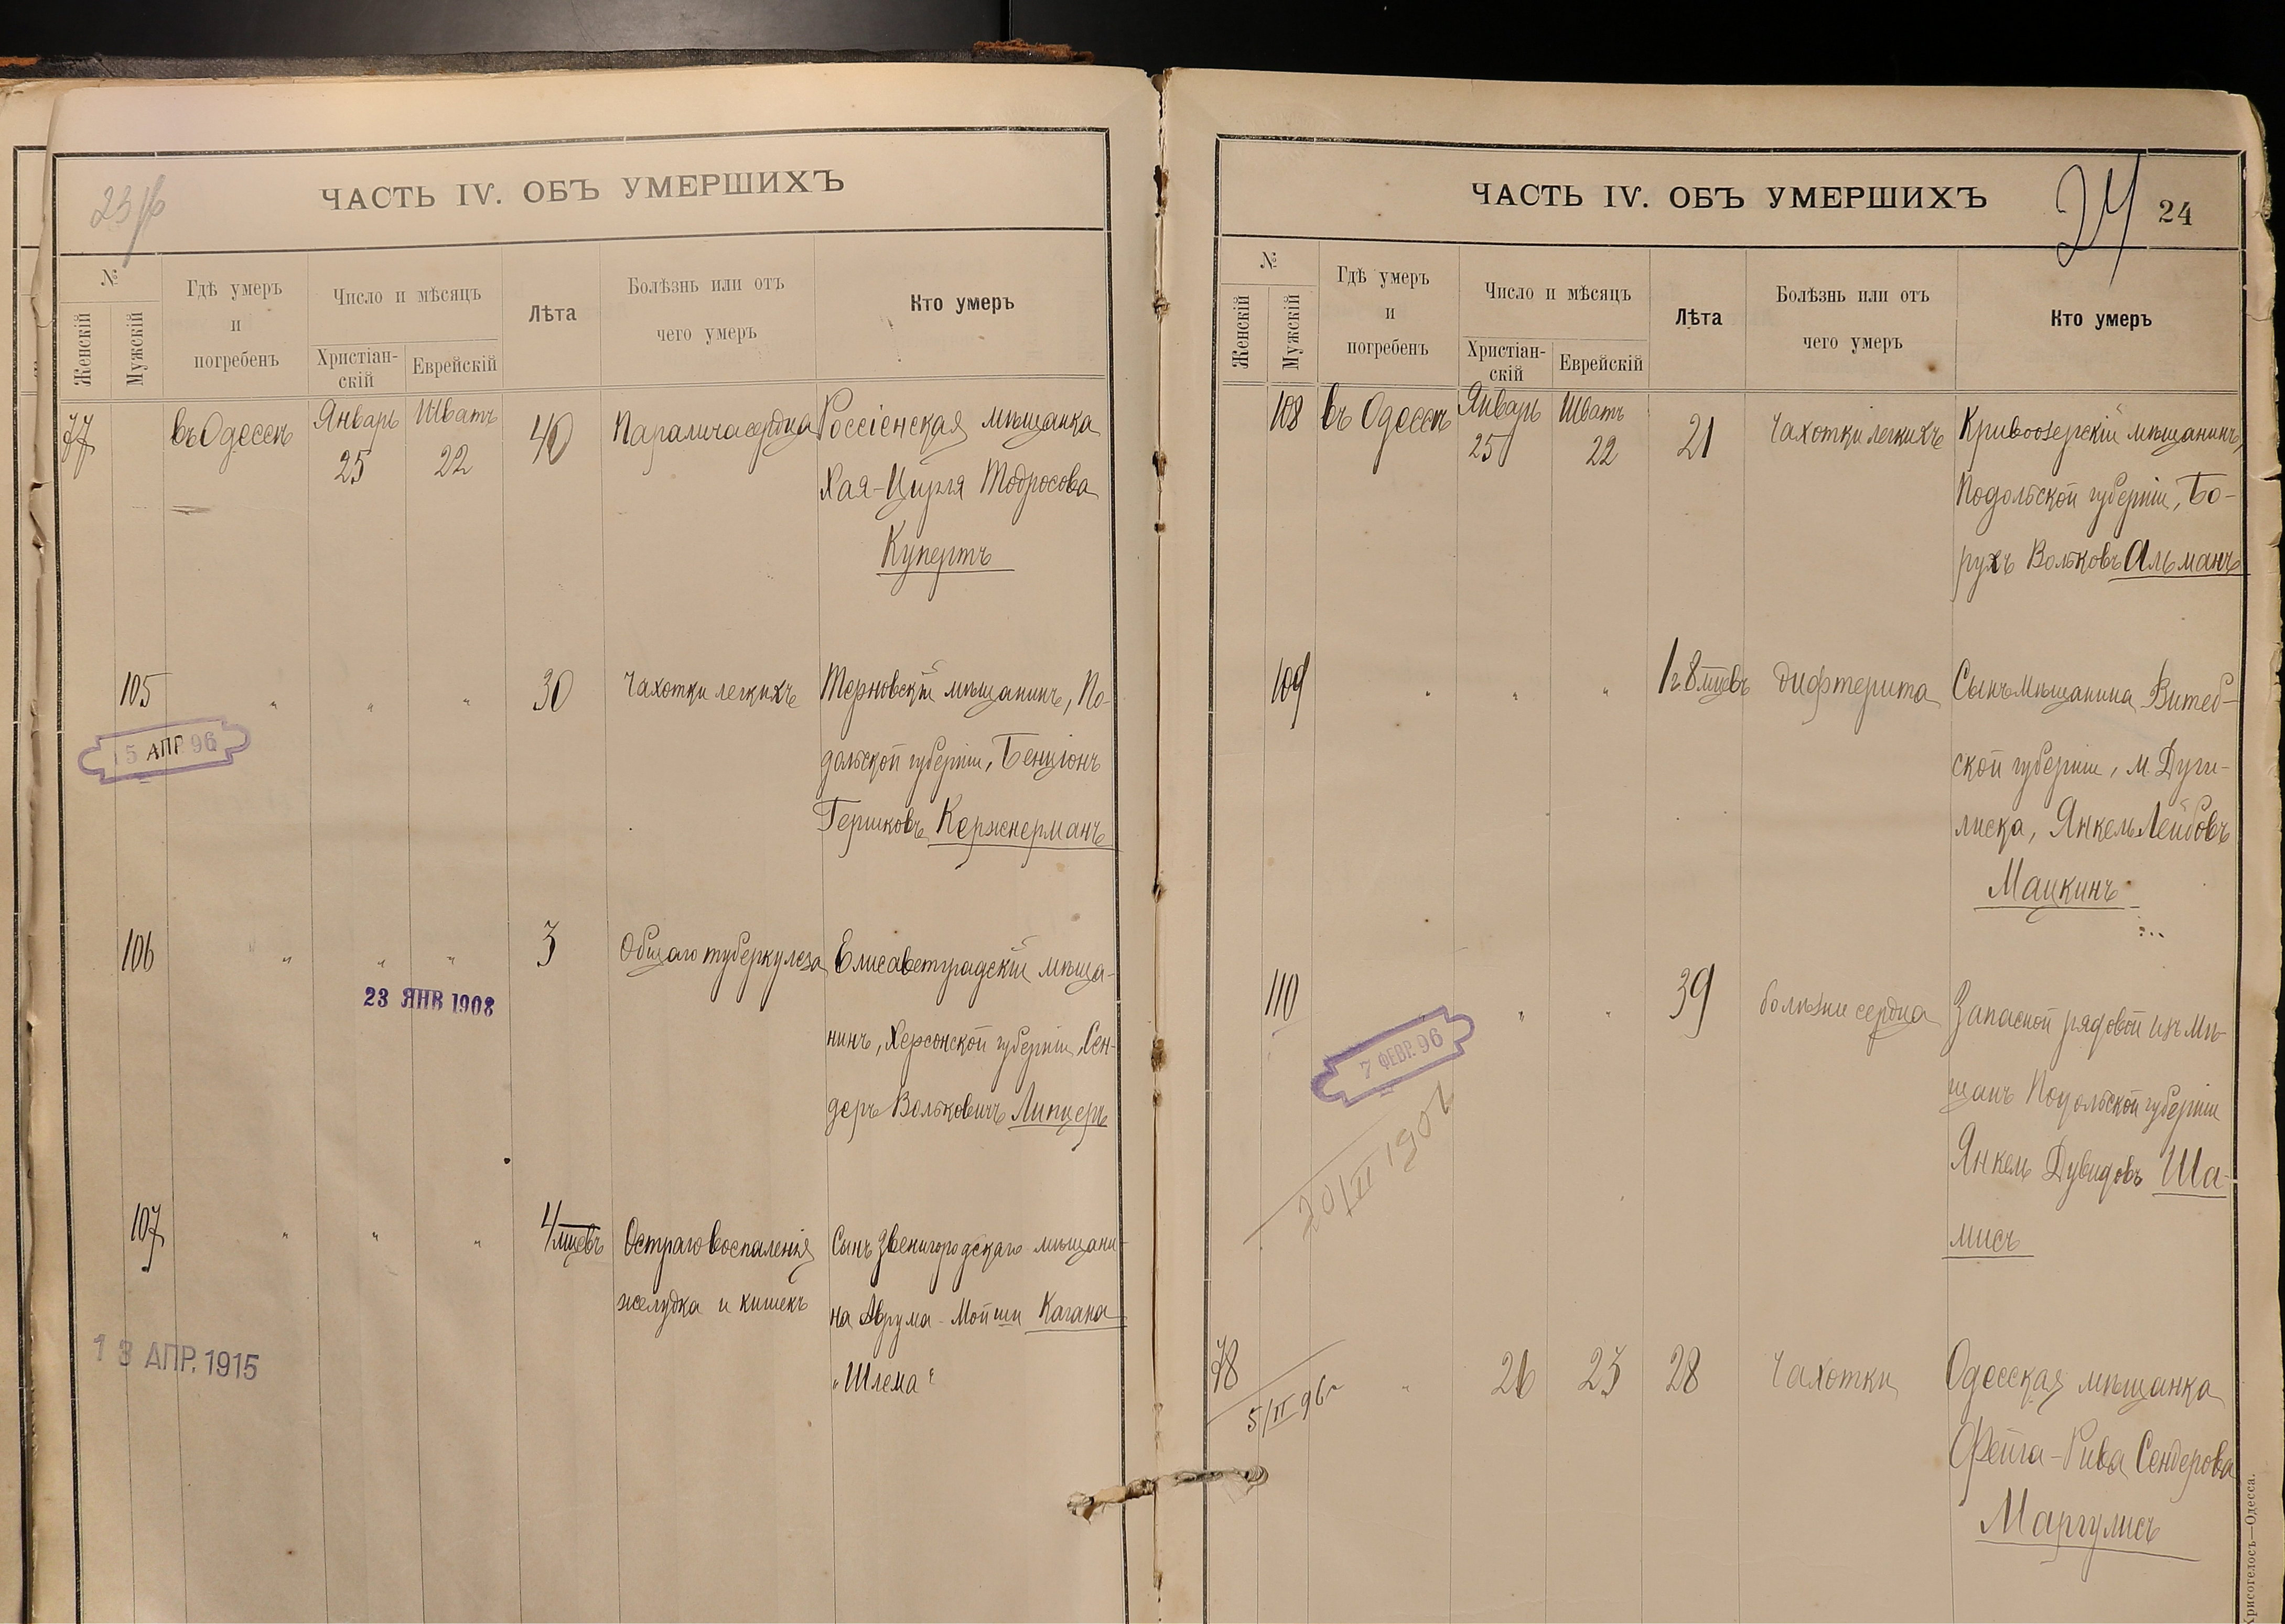 23 об
ЧАСТЬ IV. ОБЪ УМЕРШИХЪ
№
Женскій
Мужскій
Гдѣ умеръ
и
погребенъ
Число и мѣсяцъ
Христіан-
скій
Еврейскій
Лѣта
Болѣзнь или отъ
чего умеръ
Кто умеръ
77 въ Одессѣ Январь 25 Шватъ 22 40 Паралича сердца Россіенская мѣщанка
Хая-Цирля Тодросова
Купертъ
105 " " " 30 Чахотки легкихъ Терновскій мѣщанинъ, По-
дольской губерніи, Бенціонъ
Гершковъ Кержнерманъ
15 АПР. 96
106 " " " 3 Общаго туберкулеза Елисаветградскій мѣща-
нинъ, Херсонской губерніи, Сен-
деръ Вольковичъ Липцеръ
23 ЯНВ 1908
107 " " " 4 мцевъ Остраго воспаленія Сынъ Звенигородскаго мѣщани-
желудка и кишекъ на Аврума-Мойши Кагана
"Шлема"
13 АПР. 1915
ЧАСТЬ IV. ОБЪ УМЕРШИХЪ
24
24
№
Женскій
Мужскій
Гдѣ умеръ
и
погребенъ
Число и мѣсяцъ
Христіан-
скій
Еврейскій
Лѣта
Болѣзнь или отъ
чего умеръ
Кто умеръ
108 въ Одессѣ Январь 25 Шватъ 22 21 Чахотки легкихъ Кривоозерскій мѣщанинъ,
Подольской губерніи, Бо-
рухъ Вольковъ Альманъ
109 " " " 1 г. 8 мцевъ Дифтерита Сынъ мѣщанина Витеб-
ской губерніи, м. Друи-
лиска, Янкель Лейбовъ
Мацкинъ
110 " " 39 болѣзни сердца Запасной рядовой изъ мѣ-
щанъ Подольской губерніи
Янкель Дувидовъ Ша-
мисъ
7 ФЕВР. 96
20/II 1902
78 " 26 23 28 Чахотки Одесская мѣщанка
Фейга-Рива Сендерова
Маргулисъ
5/II 96 г
Хрисогелосъ—Одесса.